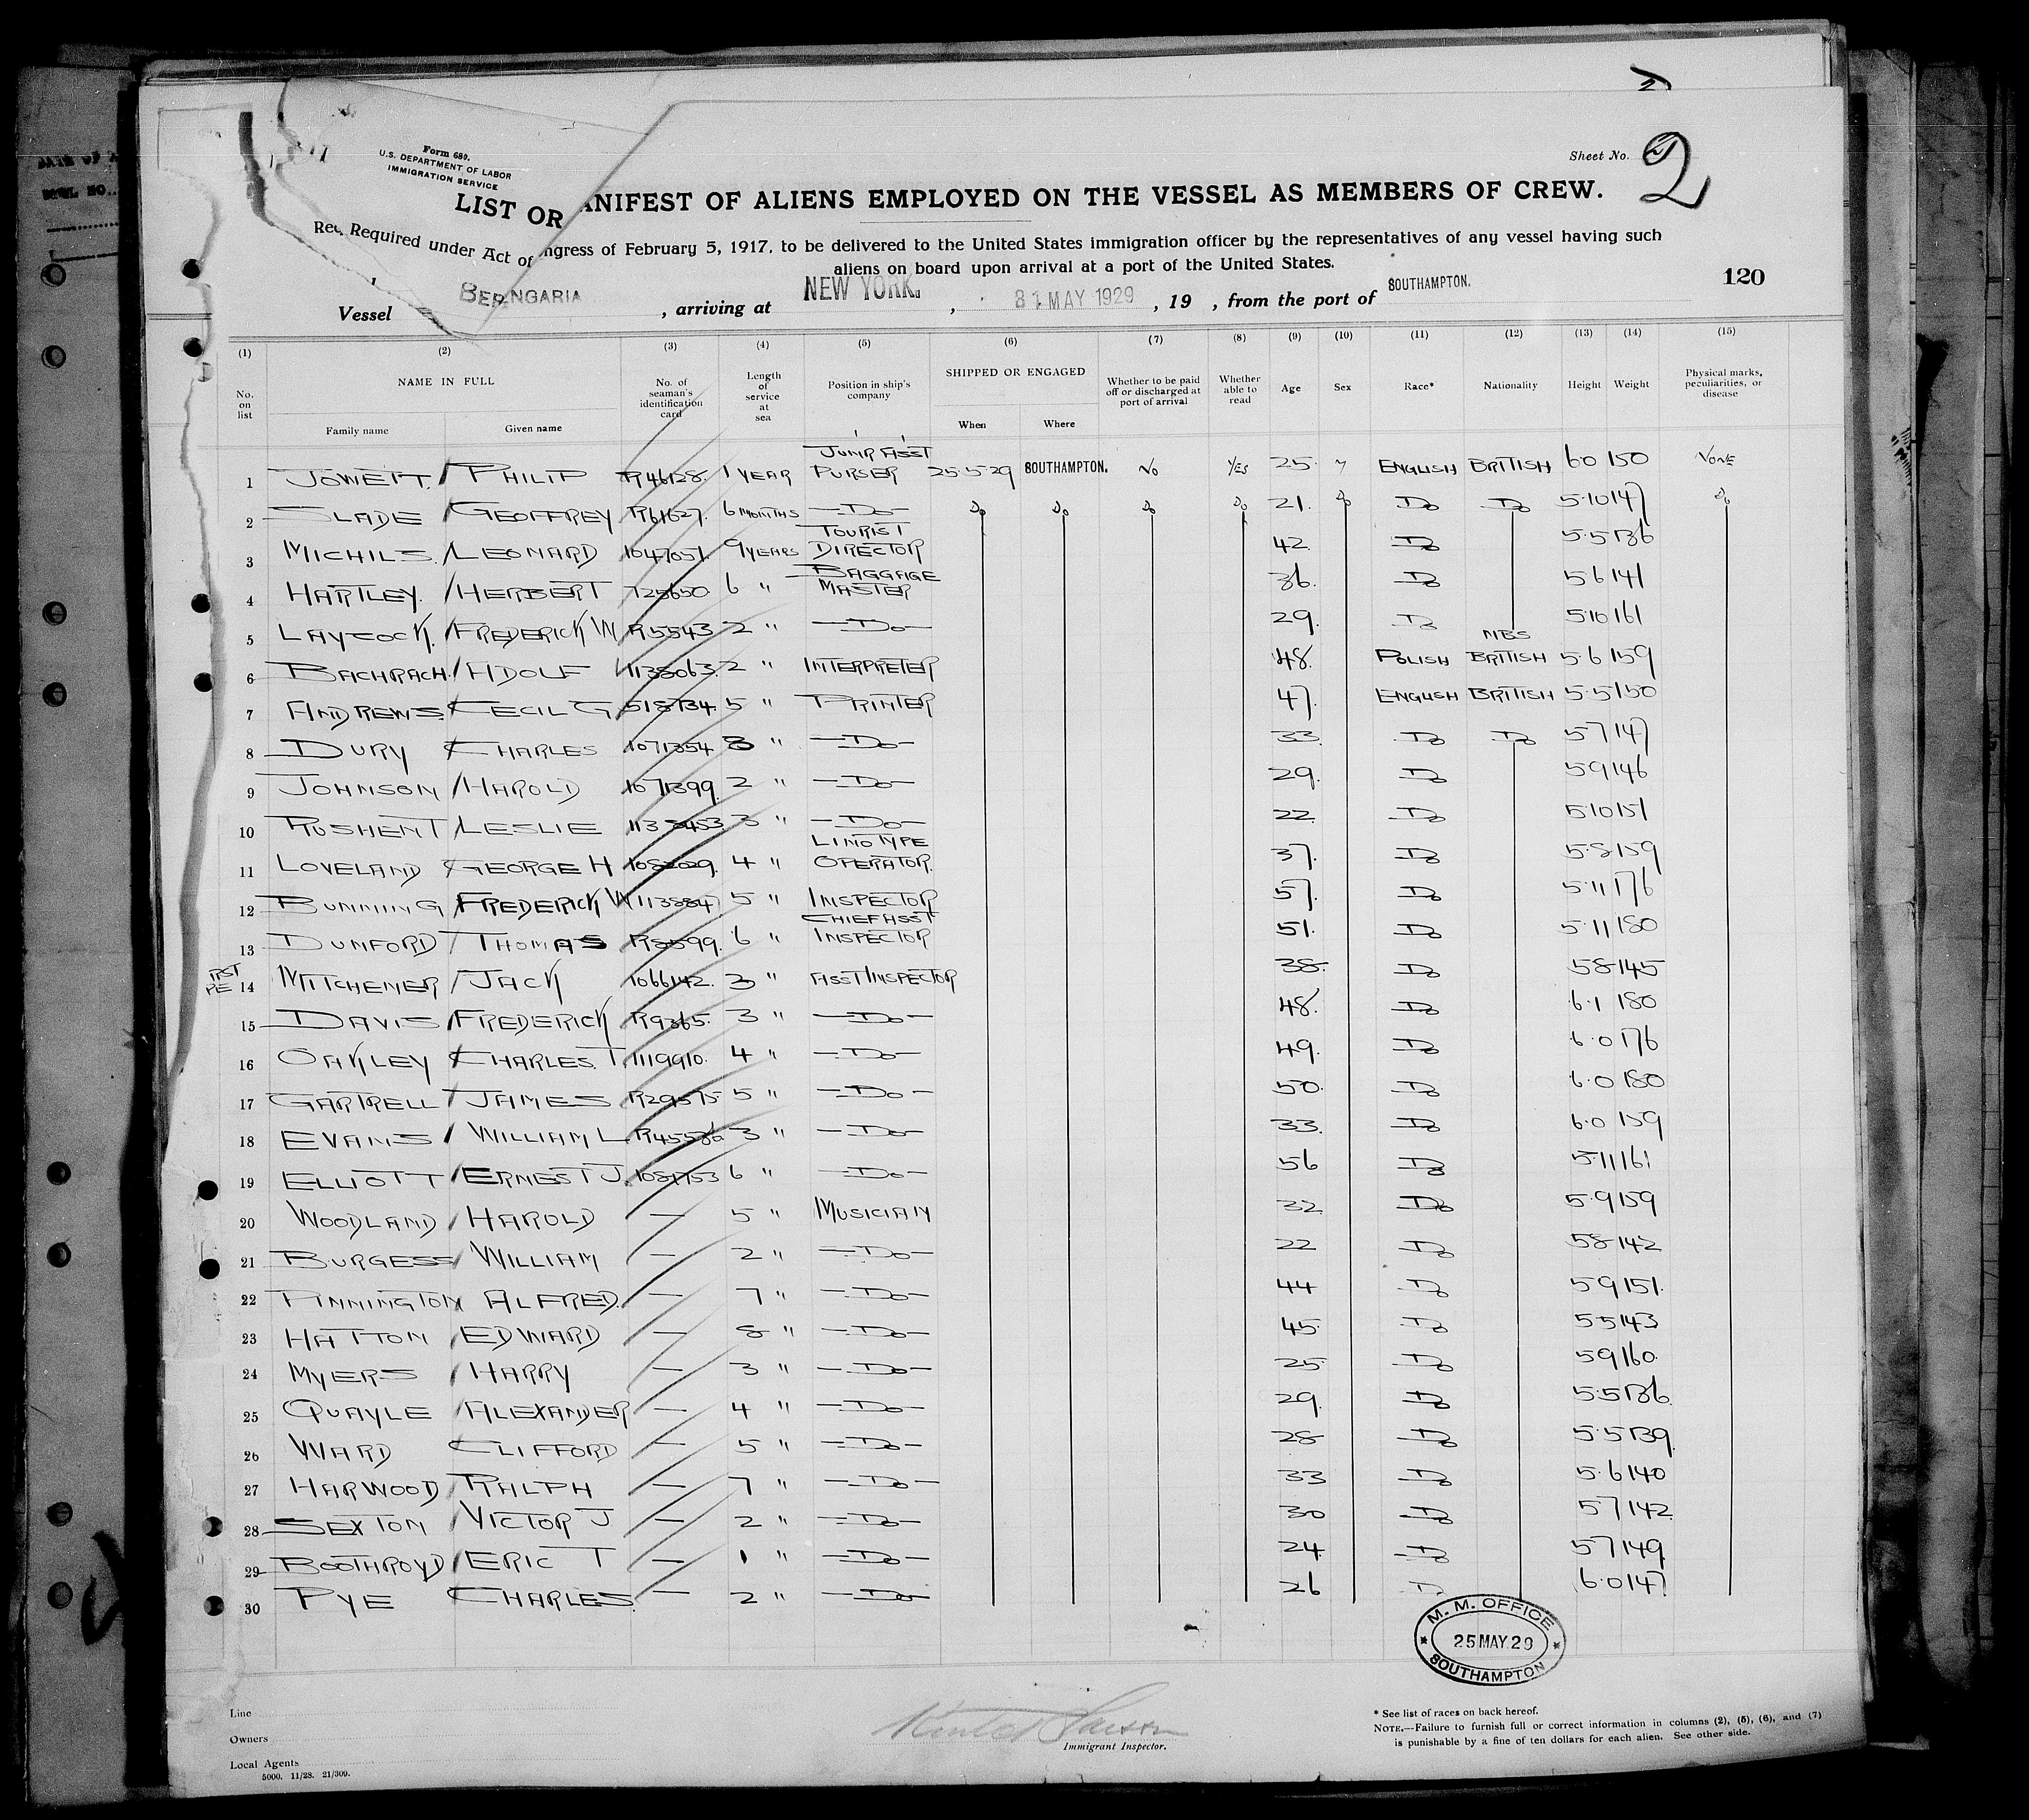 Form 680.
U.S. DEPARTMENT OF LABOR
IMMIGRATION SERVICE
Sheet No. 2
LIST OR ANIFEST OF ALIENS EMPLOYED ON THE VESSEL AS MEMBERS OF CREW.
Required under Act of ngress of February 5, 1917, to be delivered to the United States immigration officer by the representatives of any vessel having such
aliens on board upon arrival at a port of the United States.
120
Vessel BERENGARIA, arriving at NEW YORK. , 31 MAY 1929 , 19 , from the port of SOUTHAMPTON.
(1) (2) (3) (4) (5) (6) (7) (8) (9) (10) (11) (12) (13) (14) (15)
No. on list NAME IN FULL Family name Given name No. of seaman's identification card Length of service at sea Position in ship's company SHIPPED OR ENGAGED When Where Whether to be paid off or discharged at port of arrival Whether able to read Age Sex Race* Nationality Height Weight Physical marks, peculiarities, or disease
1 JOWETT. PHILIP R46128. 1 YEAR JUNR ASST PURSER 25.5.29 SOUTHAMPTON. NO YES 25. ENGLISH BRITISH 6.0 150 NONE
2 SLADE GEOFFREY R61627. 6 MONTHS -DO- DO DO DO DO 21. DO DO DO 5.10 147 DO
3 MICHILS. LEONARD 1047051. 9 YEARS TOURIST DIRECTOR 42. DO 5.5 136
4 HARTLEY. HERBERT 725650. 6 " BAGGAGE MASTER 36. DO 5.6 141
5 LAYCOCK. FREDERICK W R5543 2 " -DO- 29. DO 5.10 161
6 BACHRACH. ADOLF 1138063. 2 " INTERPRETER 48. POLISH BRITISH 5.6 159
7 ANDREWS CECIL G 518734. 5 " PRINTER 47. ENGLISH BRITISH 5.5 150
8 DURY CHARLES 1071354 8 " -DO- 33. DO DO 5.7 147
9 JOHNSON HAROLD 1071399. 2 " -DO- 29. DO 5.9 146
10 RUSHENT LESLIE 1138453 3 " -DO- 22. DO 5.10 151
11 LOVELAND GEORGE H 1082029. 4 " LINOTYPE OPERATOR. 37. DO 5.8 159
12 BUNNING FREDERICK W 1138847 5 " INSPECTOR 57. DO 5.11 176
13 DUNFORD THOMAS R8599. 6 " CHIEF ASST INSPECTOR 51. DO 5.11 180
14 MITCHENER JACK 1066142. 3 " ASST INSPECTOR 38. DO 5.8 145
15 DAVIS FREDERICK R9365. 3 " -DO- 48. DO 6.1 180
16 OAKLEY CHARLES. T. 1119910. 4 " -DO- 49. DO 6.0 176
17 GARTRELL JAMES R29575 5 " -DO- 50. DO 6.0 180
18 EVANS WILLIAM L R45586 3 " -DO- 33. DO 6.0 159
19 ELLIOTT ERNEST J. 1081753 6 " -DO- 56 DO 5.11 161
20 WOODLAND HAROLD — 5 " MUSICIAN 32 DO 5.9 159
21 BURGESS WILLIAM — 2 " -DO- 22 DO 5.8 142
22 PINNINGTON ALFRED. — 7 " -DO- 44 DO 5.9 151.
23 HATTON EDWARD — 8 " -DO- 45. DO 5.5 143
24 MYERS HARRY — 3 " -DO- 25. DO 5.9 160.
25 QUAYLE ALEXANDER — 4 " -DO- 29. DO 5.5 136.
26 WARD CLIFFORD — 5 " -DO- 28 DO 5.5 139.
27 HARWOOD RALPH — 7 " -DO- 33 DO 5.6 140
28 SEXTON VICTOR J — 2 " -DO- 30 DO 5.7 142.
29 BOOTHROYD ERIC T — 1 " -DO- 24. DO 5.7 149.
30 PYE CHARLES. — 2 " -DO- 26 DO 6.0 147
M. M. OFFICE
25 MAY.29
SOUTHAMPTON
Line
Owners
Local Agents
5000. 11/28. 21/309.
Immigrant Inspector.
* See list of races on back hereof.
NOTE.—Failure to furnish full or correct information in columns (2), (5), (6), and (7)
is punishable by a fine of ten dollars for each alien. See other side.